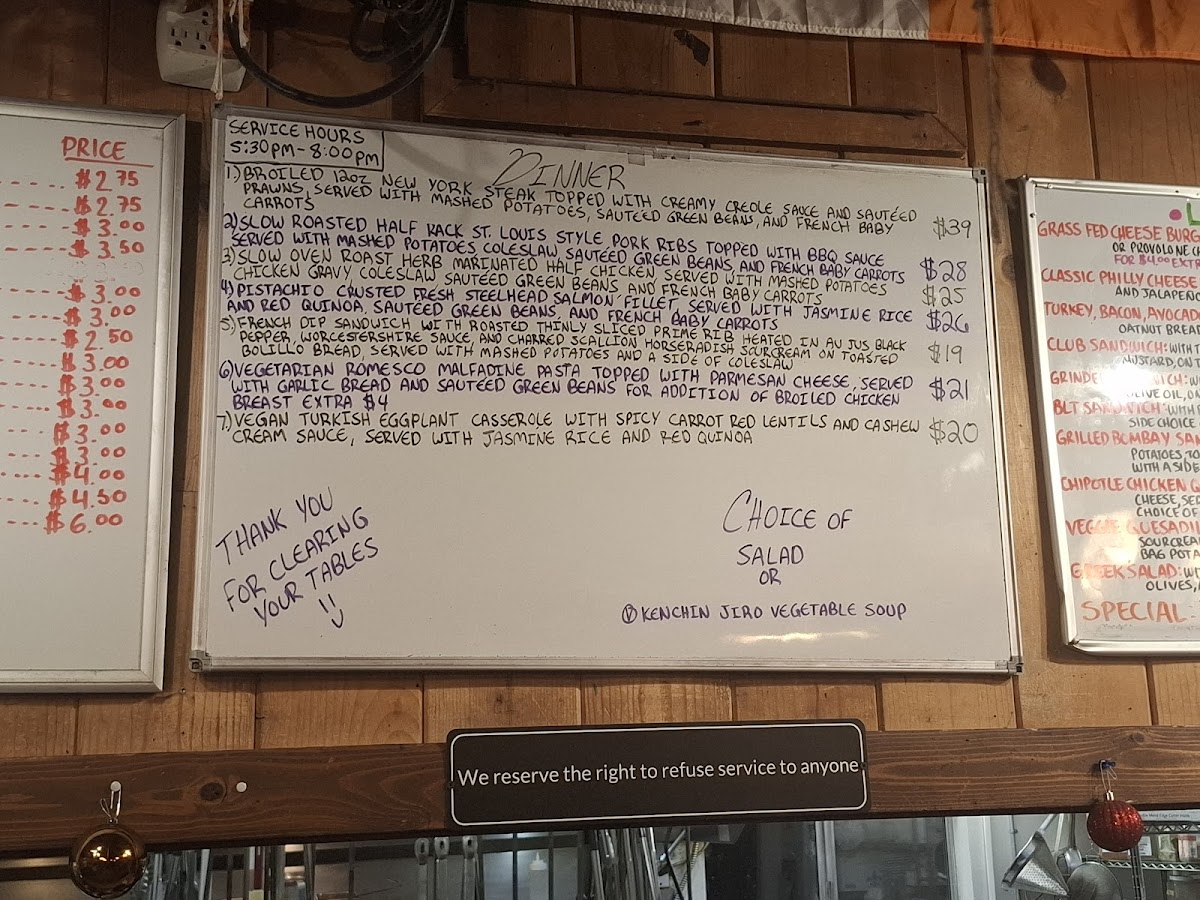 PRICE
$2.75
$2.75
$3.00
$3.50
$3.00
$3.00
$2.50
$3.00
$3.00
$3.00
$3.00
$4.00
$4.50
$6.00
SERVICE HOURS
5:30PM-8:00PM
DINNER
1.) BROILED 12OZ NEW YORK STEAK TOPPED WITH CREAMY CREOLE SAUCE AND SAUTÉED
PRAWNS, SERVED WITH MASHED POTATOES, SAUTÉED GREEN BEANS, AND FRENCH BABY
CARROTS $39
2.) SLOW ROASTED HALF RACK ST. LOUIS STYLE PORK RIBS TOPPED WITH BBQ SAUCE
SERVED WITH MASHED POTATOES COLESLAW SAUTÉED GREEN BEANS, AND FRENCH BABY CARROTS $28
3.) SLOW OVEN ROAST HERB MARINATED HALF CHICKEN SERVED WITH MASHED POTATOES
CHICKEN GRAVY, COLESLAW, SAUTÉED GREEN BEANS AND FRENCH BABY CARROTS $25
4.) PISTACHIO CRUSTED FRESH STEELHEAD SALMON FILLET, SERVED WITH JASMINE RICE
AND RED QUINOA, SAUTÉED GREEN BEANS, AND FRENCH BABY CARROTS $26
5.) FRENCH DIP SANDWICH WITH ROASTED THINLY SLICED PRIME RIB HEATED IN AU JUS BLACK
PEPPER, WORCESTERSHIRE SAUCE, AND CHARRED SCALLION HORSERADISH SOURCREAM ON TOASTED
BOLILLO BREAD, SERVED WITH MASHED POTATOES AND A SIDE OF COLESLAW $19
6.) VEGETARIAN ROMESCO MALFADINE PASTA TOPPED WITH PARMESAN CHEESE, SERVED
WITH GARLIC BREAD AND SAUTÉED GREEN BEANS FOR ADDITION OF BROILED CHICKEN
BREAST EXTRA $4 $21
7.) VEGAN TURKISH EGGPLANT CASSEROLE WITH SPICY CARROT RED LENTILS AND CASHEW
CREAM SAUCE, SERVED WITH JASMINE RICE AND RED QUINOA $20
THANK YOU
FOR CLEARING
YOUR TABLES
CHOICE OF
SALAD
OR
Ⓥ KENCHIN JIRO VEGETABLE SOUP
GRASS FED CHEESE BURGE
OR PROVOLONE CH
FOR $4.00 EXTR
CLASSIC PHILLY CHEESE
AND JALAPEN
TURKEY, BACON, AVOCAD
OATNUT BREA
CLUB SANDWICH: WITH T
MUSTARD, ON T
GRINDE
OLIVE OIL, ON
BLT SANDWICH: WITH
SIDE CHOICE
GRILLED BOMBAY SAN
POTATOES, TO
WITH A SIDE
CHIPOTLE CHICKEN Q
CHEESE, SER
CHOICE OF
VEGGIE QUESADIL
SOURCREA
BAG POTA
GREEK SALAD: WIT
OLIVES,
SPECIAL
We reserve the right to refuse service to anyone